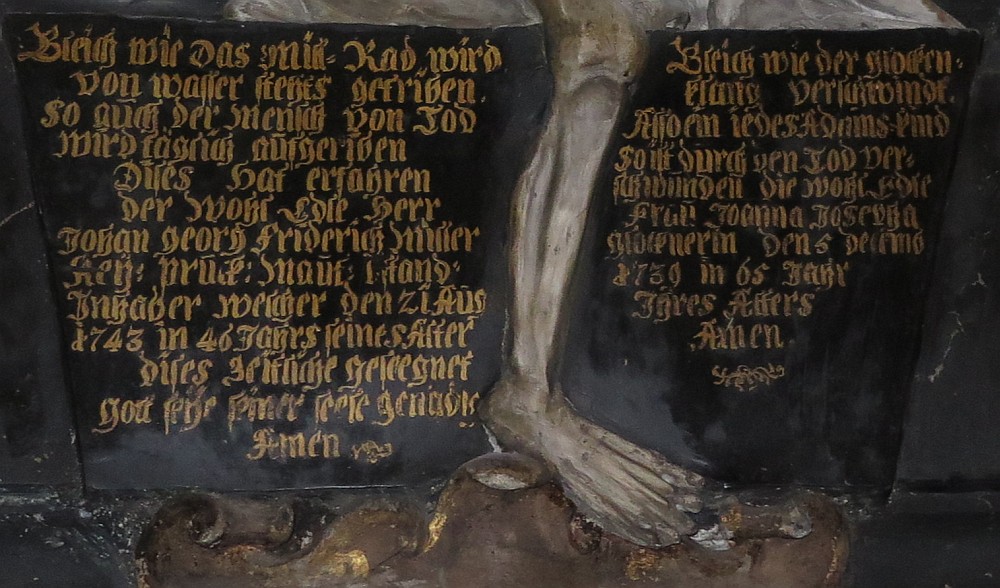 Gleich wie Das Müll- Rad wird
von wasser stehts getriben.
So auch der Mensch von Tod
wird täglich aufgeriben
Dises Hat erfahren
der Wohl Edle Herr
Johan Georg Friderich Müller
prück: Maut: 
Inhaber welcher den 21 Aug
1743 in 46 Jahrs seines Alter
dises Zeitliche geseegnet
Gott seye seiner seele genädig
Amen
Gleich wie der glocken-
klang verschwindt.
Also ein iedes Adams-kind
So ist durch den Tod ver-
schwunden die wohl Edle
Frau Joanna Josepha
Glocknerin den 5 
1739 in 65 Jahr
Ihres Alters
Amen